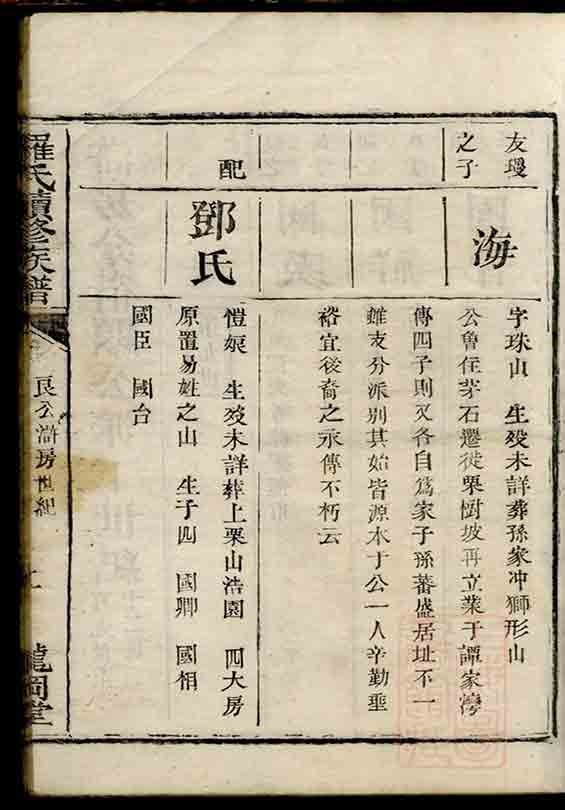 友璦
之子
海
字珠山 生殁未詳葬孫家冲獅形山
公魯住茅石遷徙栗樹坡再立業于譚家灣
傳四子則又各自為家子孫蕃盛居址不一
雖支分派別其始皆源本于公一人辛勤垂
裕宜後裔之永傳不朽云
配
鄧氏
愷娘 生殁未詳葬上栗山浩園 四大房
原置易姓之山 生子四 國卿 國相
國臣 國台
羅氏續修族譜
良公澍房世紀
龍岡堂